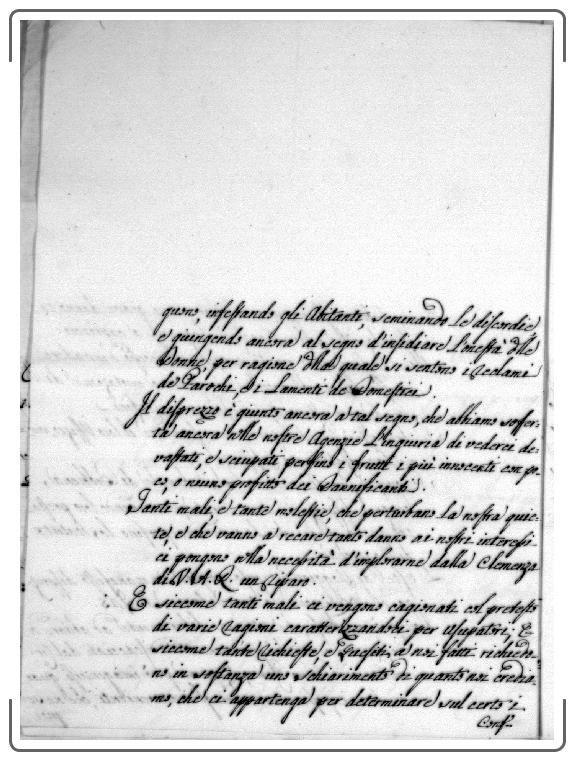 guono, infestando gli Abitanti, seminando le discordie
e giungendo ancora al segno d'insidiare l'onestà d'lle
Donne, per ragione d'lla quale si sentono i Reclami
de Parochi, e i Lamenti de Domestici.
Il disprezzo è giunto ancora a tal segno, che abbiamo soffer-
ta ancora n'lle nostre Agenzie l'ingiuria di vederci de-
vastati, e sciupati perfino i frutti i più innocenti con po-
co, o niuno profitto dei Dannificanti.
Tanti mali, e tante molestie, che perturbano la nostra quie-
te, e che vanno a recare tanto danno ai nostri interessi
ci pongono n'lla necessità d'implorarne dalla Clemenza
di V. A. R. un Riparo.
E siccome tanti mali ci vengono cagionati col pretesto
di varie Ragioni caratterizzandoci per Usurpatori, E
siccome tante Richieste e Quesiti, a noi fatti richiedo-
no in sostanza uno schiarimento di quanto noi credia-
mo, che ci appartenga per determinare sul certo i
Conf-